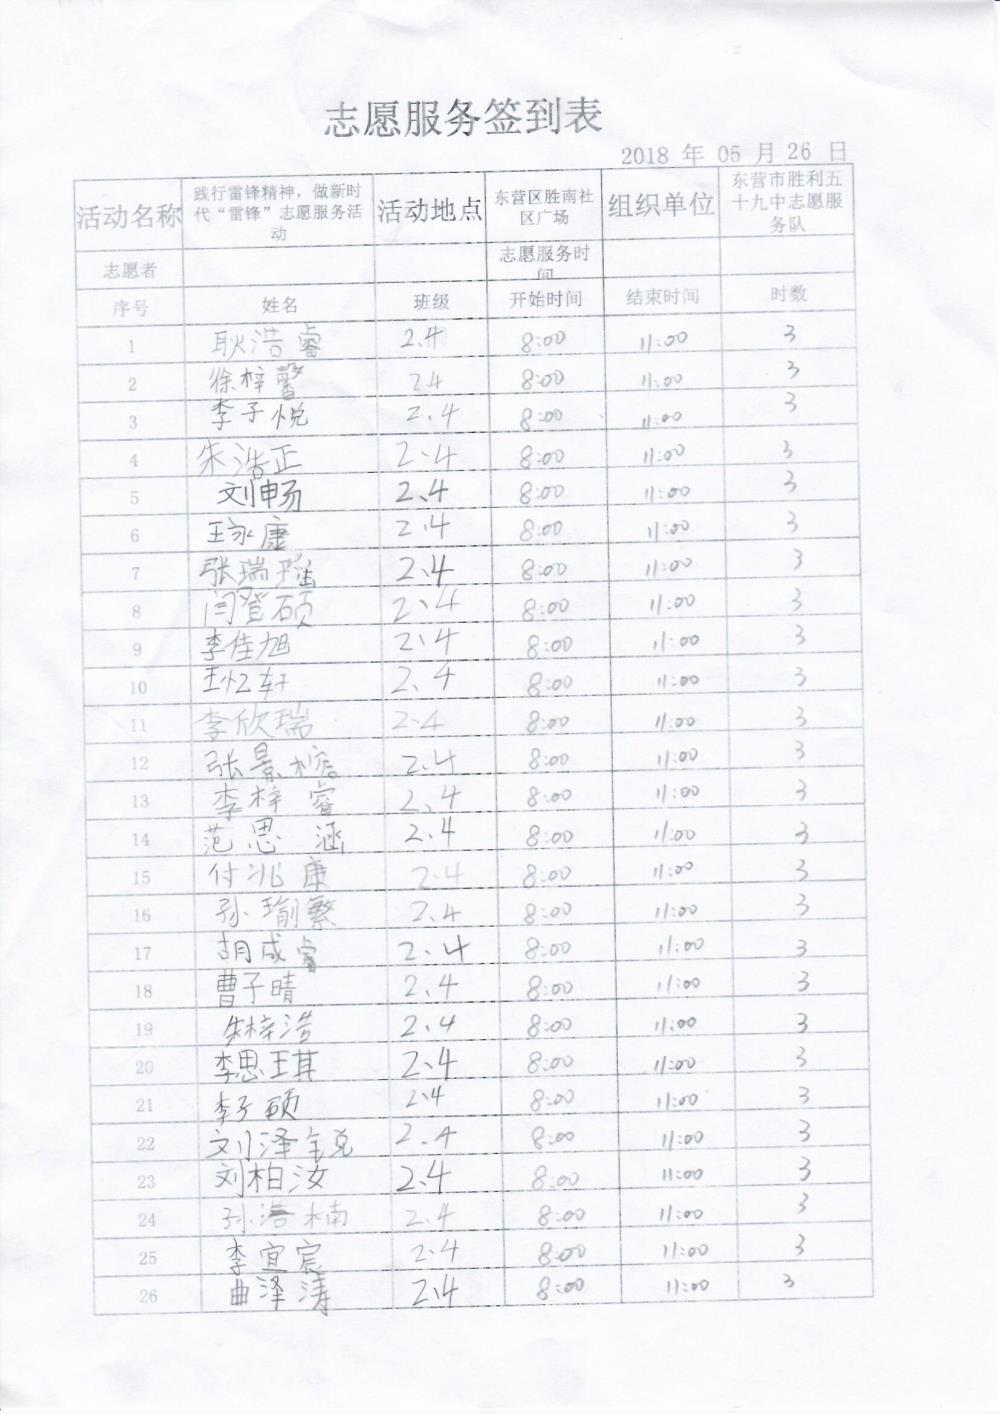 志愿服务签到表
2018 年 05 月 26 日
活动名称 践行雷锋精神，做新时代“雷锋”志愿服务活动 活动地点 东营区胜南社区广场 组织单位 东营市胜利五十九中志愿服务队
志愿者 志愿服务时间
序号 姓名 班级 开始时间 结束时间 时数
1 耿浩睿 2.4 8:00 11:00 3
2 徐梓馨 2.4 8:00 11:00 3
3 李子悦 2.4 8:00 11:00 3
4 朱浩正 2.4 8:00 11:00 3
5 刘申畅 2.4 8:00 11:00 3
6 王永康 2.4 8:00 11:00 3
7 张瑞瑶 2.4 8:00 11:00 3
8 闫登硕 2.4 8:00 11:00 3
9 李佳旭 2.4 8:00 11:00 3
10 王忆轩 2.4 8:00 11:00 3
11 李欣瑞 2.4 8:00 11:00 3
12 张景榕 2.4 8:00 11:00 3
13 李梓睿 2.4 8:00 11:00 3
14 范思涵 2.4 8:00 11:00 3
15 付兆康 2.4 8:00 11:00 3
16 孙瑜繁 2.4 8:00 11:00 3
17 胡成睿 2.4 8:00 11:00 3
18 曹子晴 2.4 8:00 11:00 3
19 朱梓浩 2.4 8:00 11:00 3
20 李思琪 2.4 8:00 11:00 3
21 李子硕 2.4 8:00 11:00 3
22 刘泽锐 2.4 8:00 11:00 3
23 刘柏汝 2.4 8:00 11:00 3
24 孙浩楠 2.4 8:00 11:00 3
25 李宜宸 2.4 8:00 11:00 3
26 曲泽涛 2.4 8:00 11:00 3